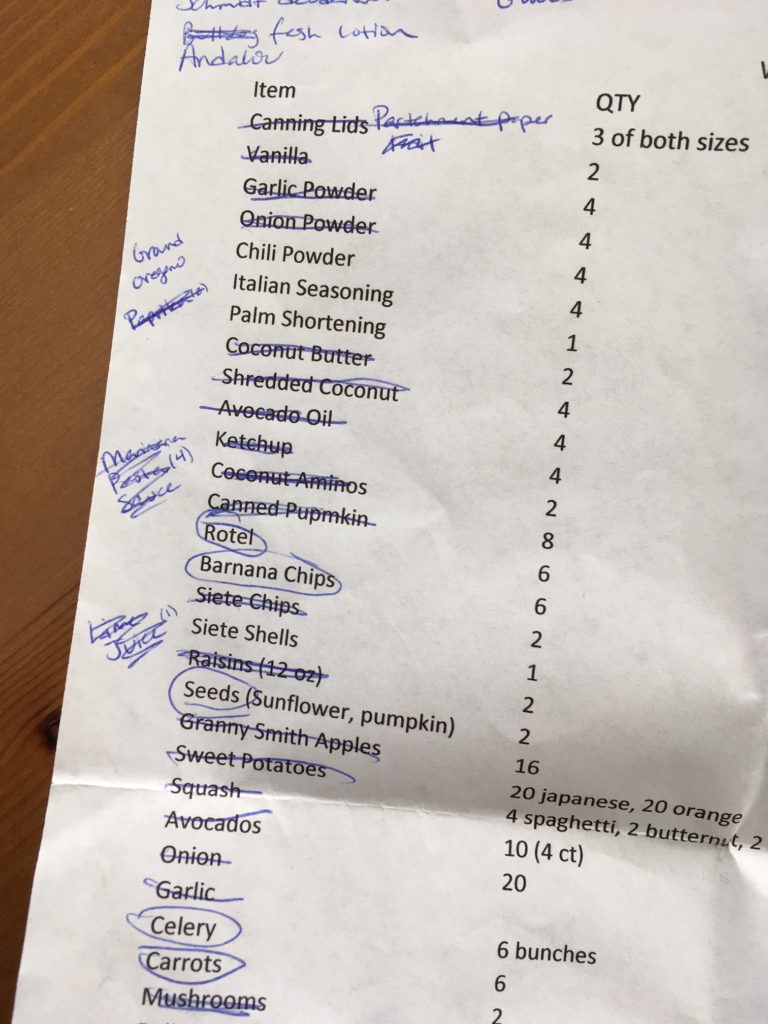 fash lotion
Andalou
Item QTY
Canning Lids Partchment paper 3 of both sizes
Vanilla 2
Garlic Powder 4
Onion Powder 4
Chili Powder 4
Ground
oregeno
Italian Seasoning 4
Palm Shortening 1
Coconut Butter 2
Shredded Coconut 4
Avocado Oil 4
Ketchup 4
Marinara
Pasta (4)
Sauce
Coconut Aminos 2
Canned Pupmkin 8
Rotel 6
Barnana Chips 6
Siete Chips 2
Lime (1)
Juice
Siete Shells 1
Raisins (12 oz) 2
Seeds (Sunflower, pumpkin) 2
Granny Smith Apples 16
Sweet Potatoes 20 japanese, 20 orange
Squash 4 spaghetti, 2 butternut, 2
Avocados 10 (4 ct)
Onion 20
Garlic
Celery 6 bunches
Carrots 6
Mushrooms 2